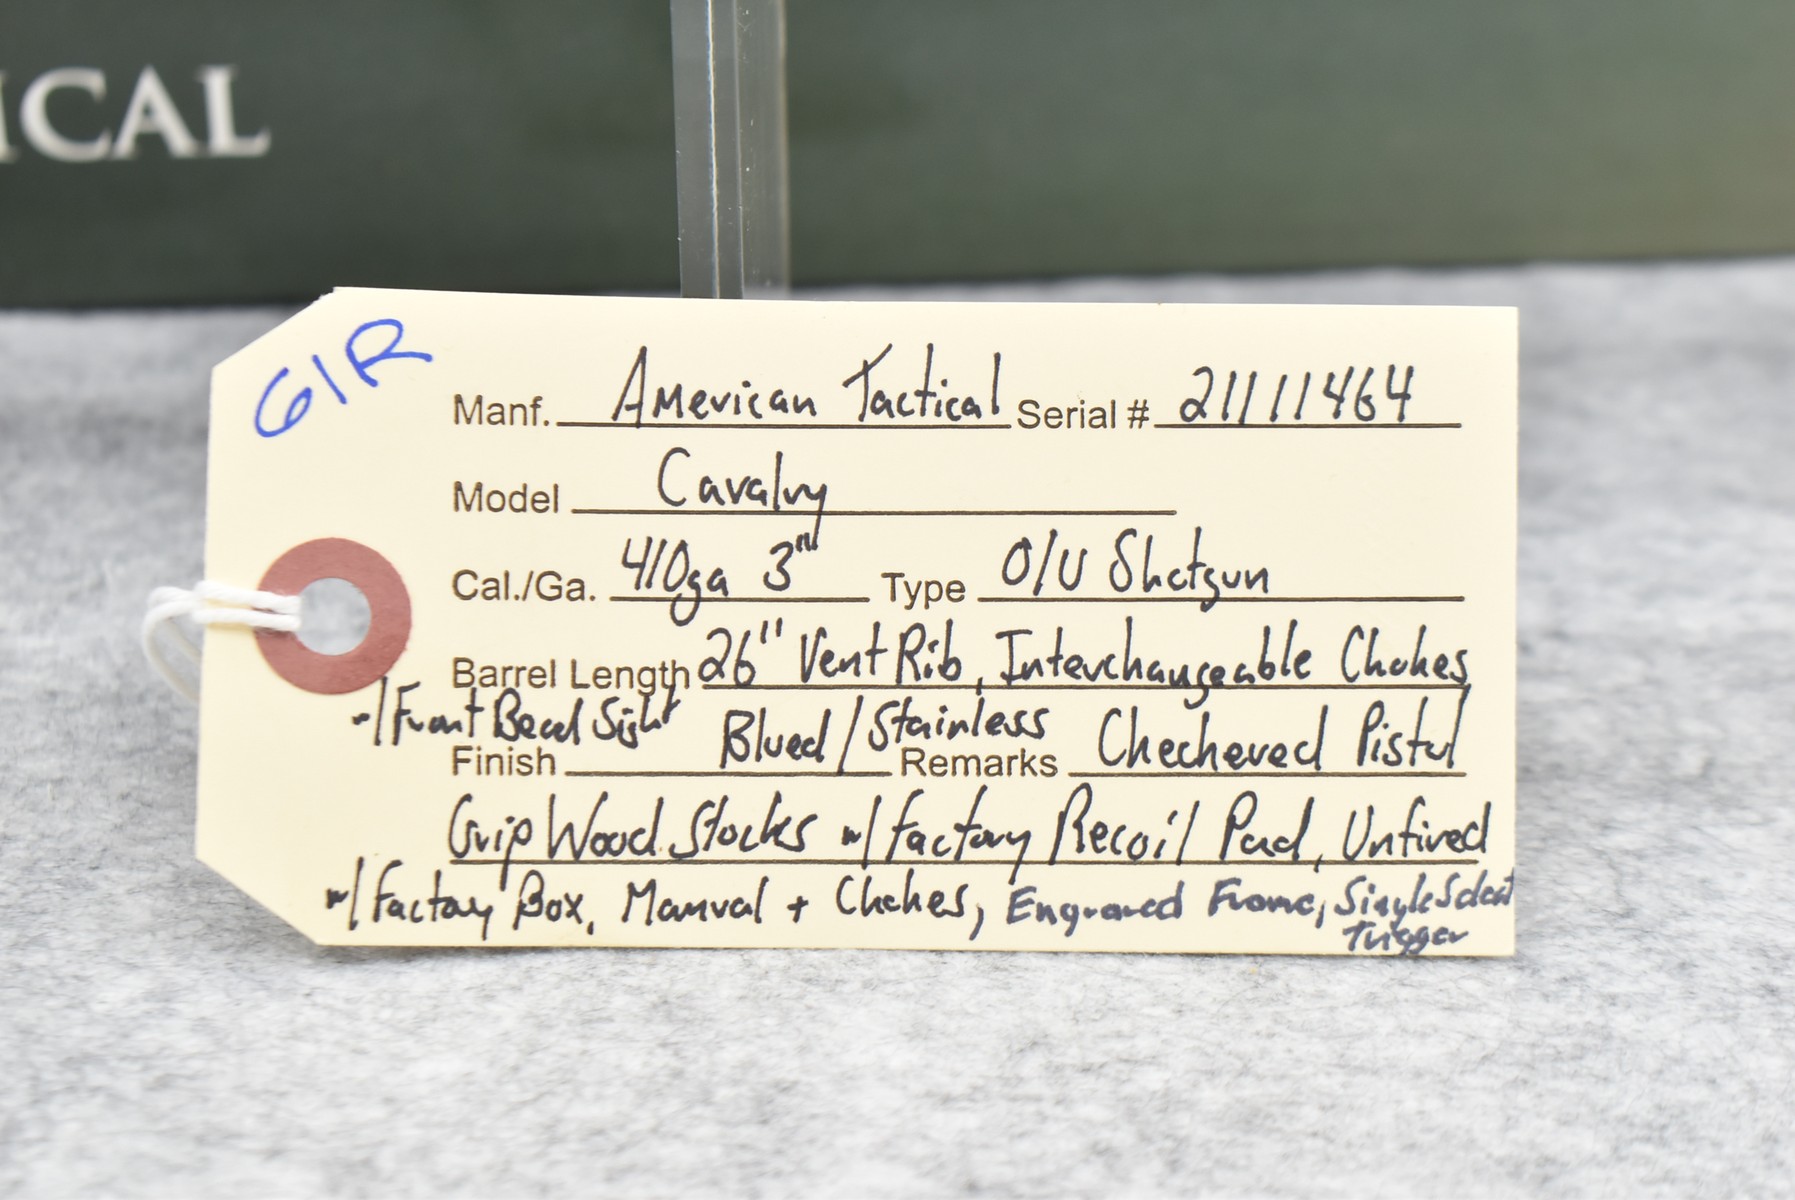 ICAL
61R
Manf. American Tactical Serial # 21111464
Model Cavalry
Cal./Ga. 410ga 3" Type O/U Shotgun
Barrel Length 26" Vent Rib, Interchangeable Chokes
w/ Front Bead Sight
Finish Blued/Stainless Remarks Checkered Pistol
Grip Wood Stocks w/ factory Recoil Pad, Unfired
w/ factory Box, Manual + Chokes, Engraved Frame, Single Select
Trigger